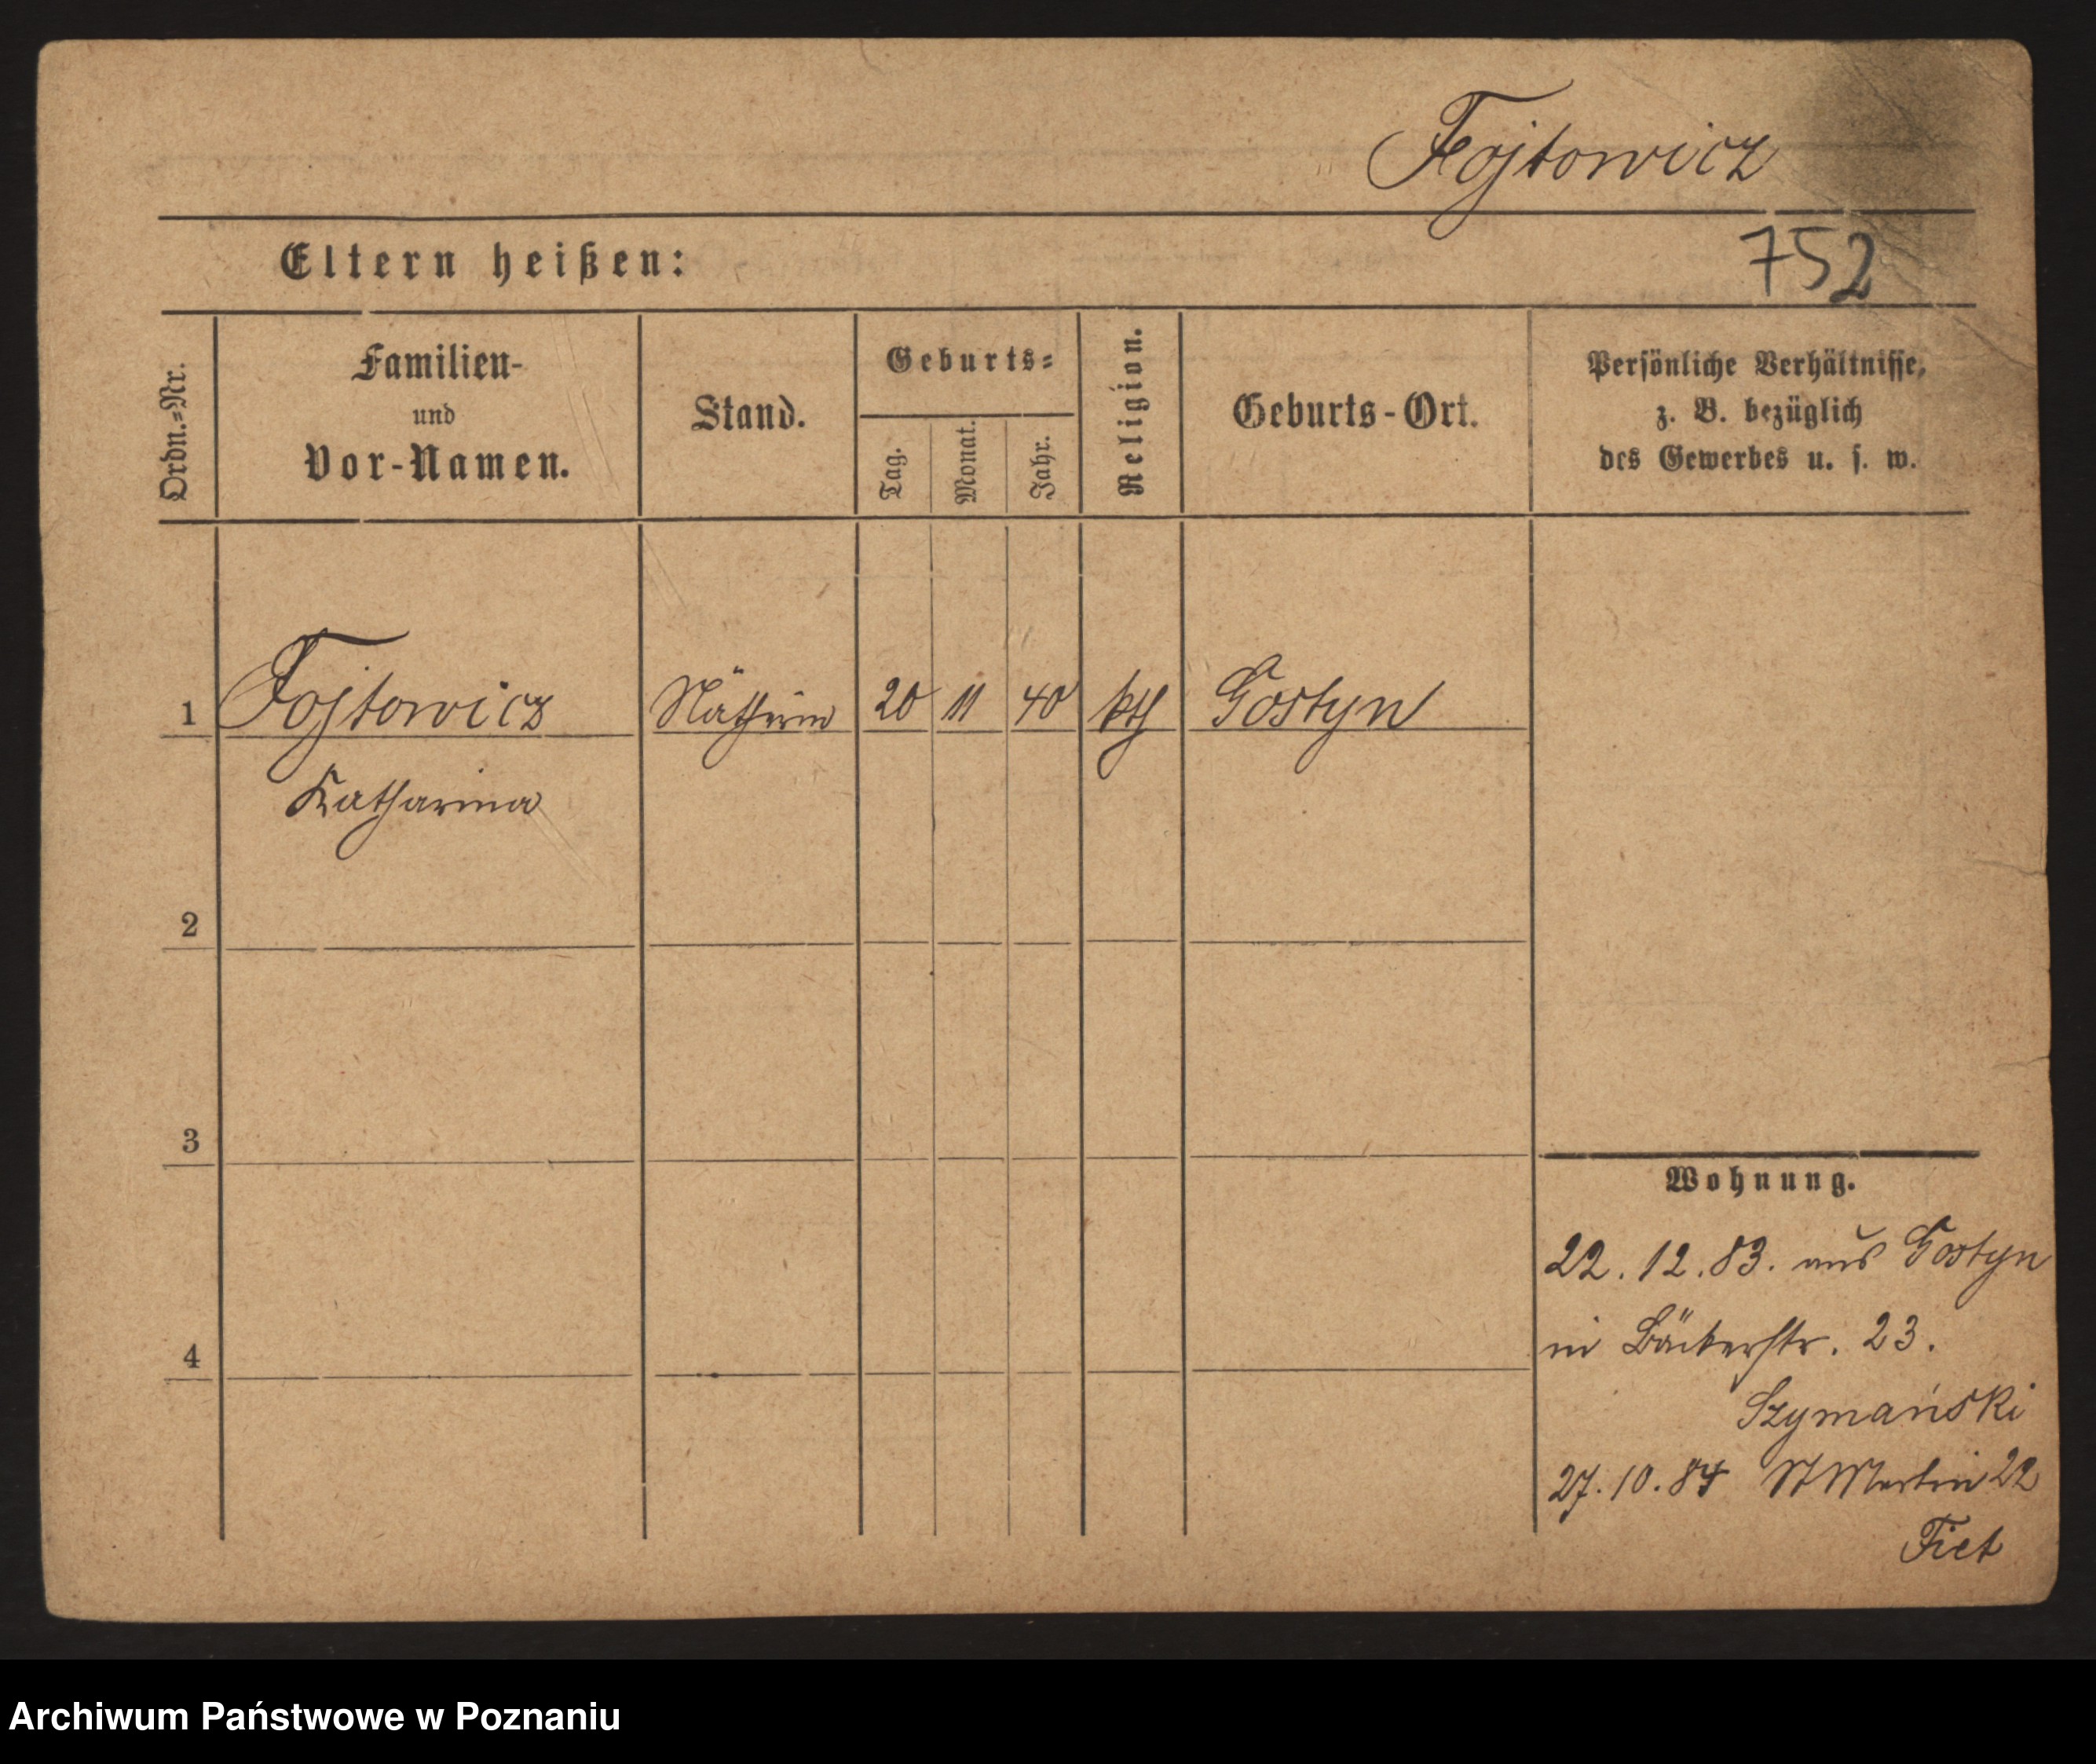 Fojtowicz
Eltern heißen:
752
Ordn.=Nr.
Familien-
und
Vor-Namen.
Stand.
Geburts=
Tag.
Monat.
Jahr.
Religion.
Geburts-Ort.
Persönliche Verhältnisse,
z. B. bezüglich
des Gewerbes u. s. w.
1 Fojtowicz Näherin 20 11 40 kth Gostyn
Katharina
2
3
4
Wohnung.
22. 12. 83. aus Gostyn
in Bäckerstr. 23.
Szymański
27. 10. 84 St Martin 22
Fiet
Archiwum Państwowe w Poznaniu